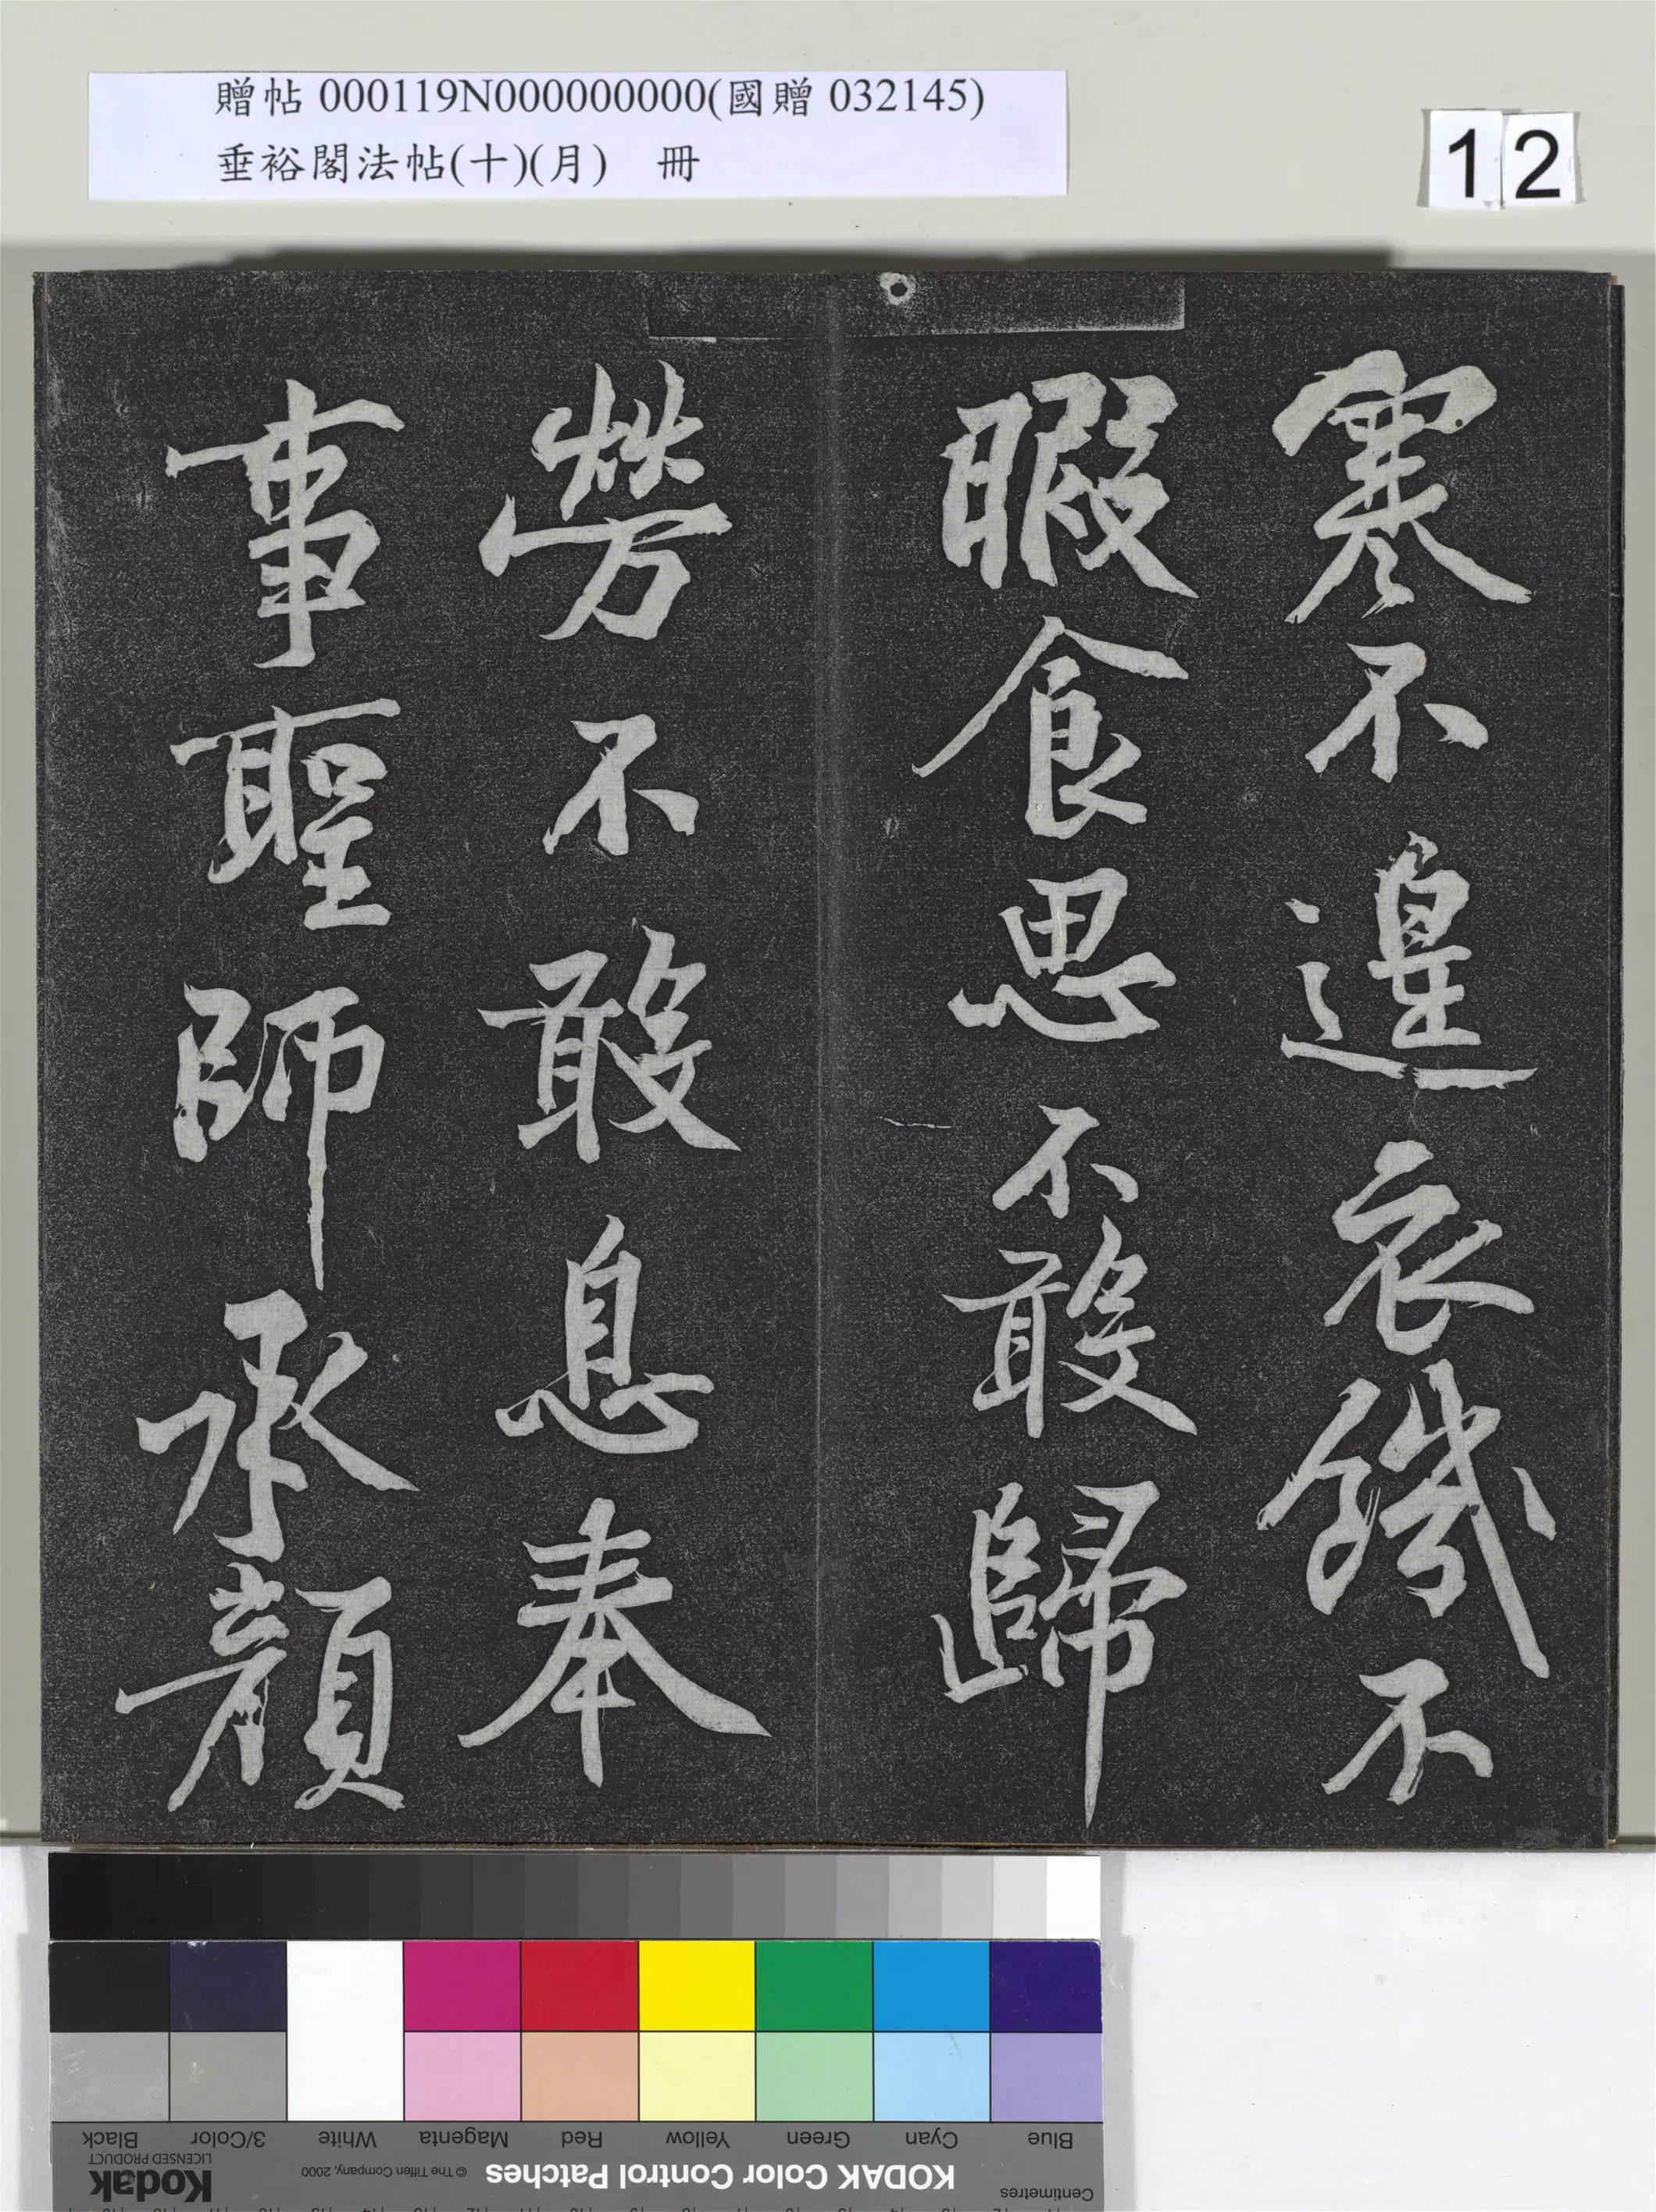 贈帖 000119N000000000(國贈 032145)
垂裕閣法帖(十)(月) 冊
12
寒不遑衣餓不
暇食思不敢歸
勞不敢息奉
事聖師承顏
Blue
Cyan
Green
Yellow
Red
Magenta
White
3/Color
Black
Centimetres
KODAK Color Control Patches
© The Tiffen Company, 2000
Kodak
LICENSED PRODUCT